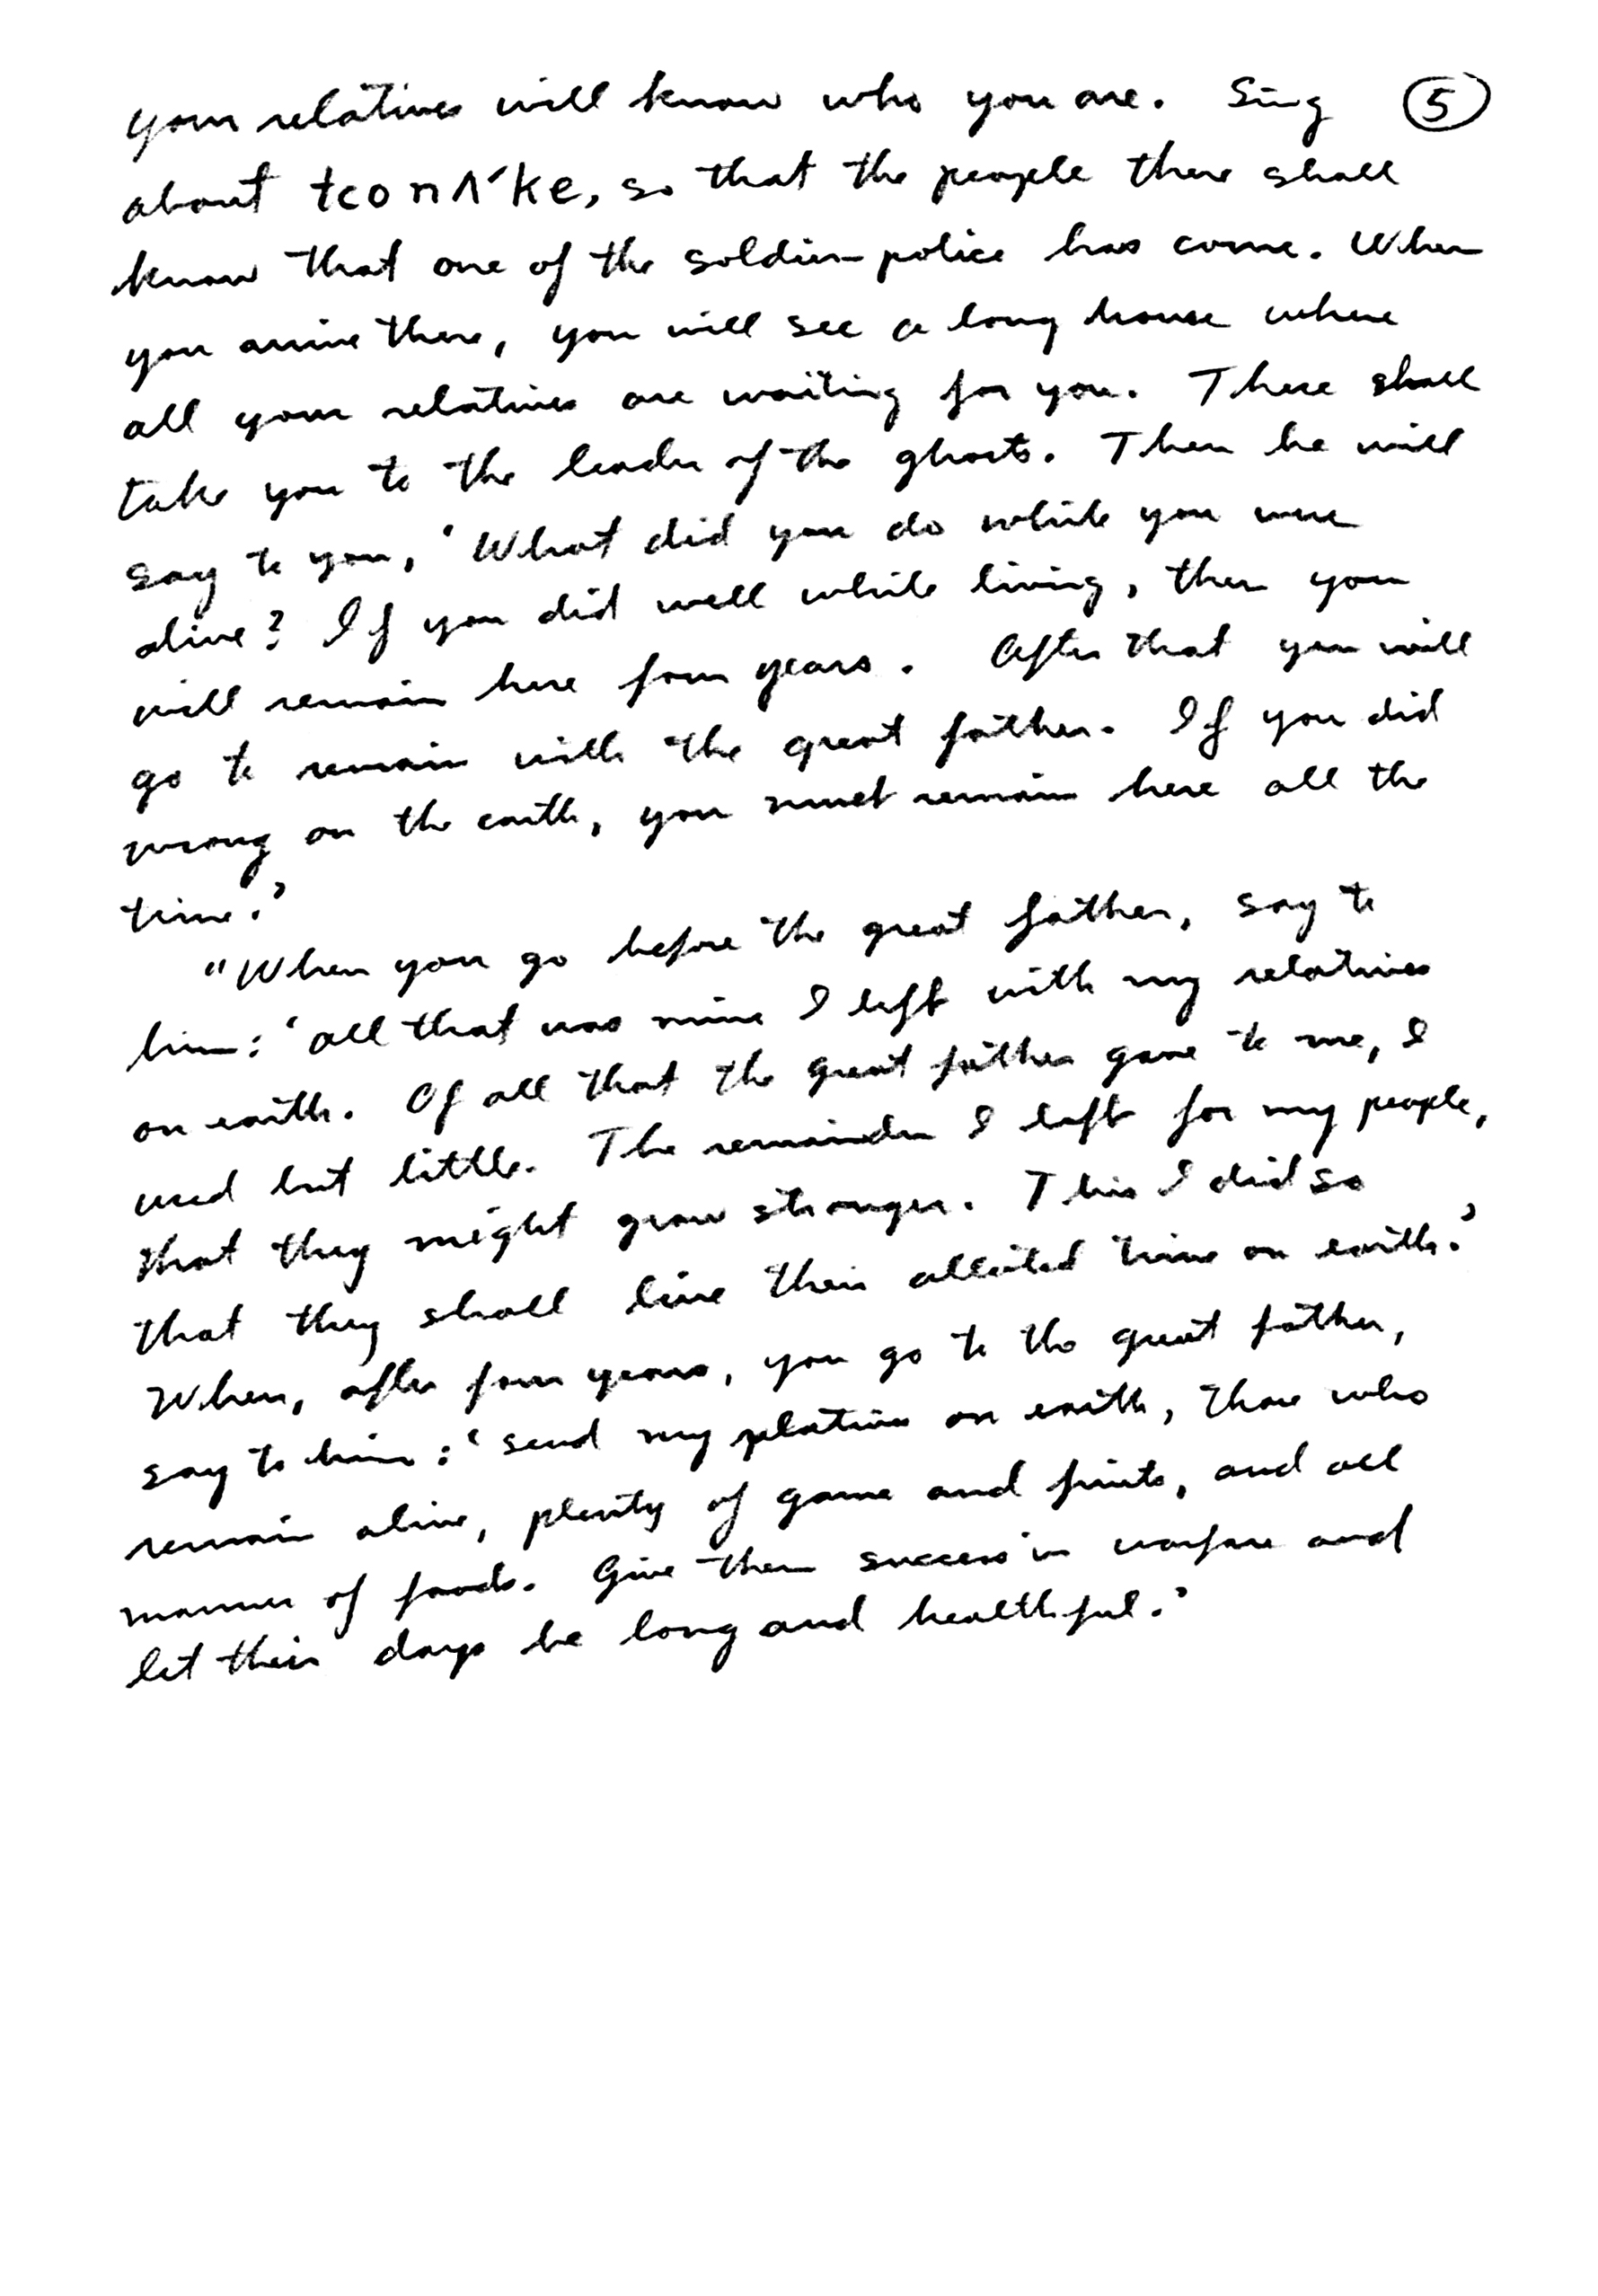 your relatives will know who you are. Sing ⑤
about tconʌ´ke, so that the people there shall
know that one of the soldier-police has come. When
you arrive there, you will see a long house where
all your relatives are waiting for you. These shall
take you to the leader of the ghosts. Then he will
say to you, 'What did you do while you were
alive? If you did well while living, then you
will remain here four years. After that you will
go to remain with the great father. If you did
wrong on the earth, you must remain here all the
time.'
"When you go before the great father, say to
him: 'all that was mine I left with my relatives
on earth. Of all that the great father gave to me, I
used but little. The remainder I left for my people,
that they might grow stronger. This I did so
that they shall live their allotted time on earth.'
When, after four years, you go to the great father,
say to him: 'send my relatives on earth, those who
remain alive, plenty of game and fruits, and all
manner of foods. Give them success in warfare and
let their days be long and healthful.'